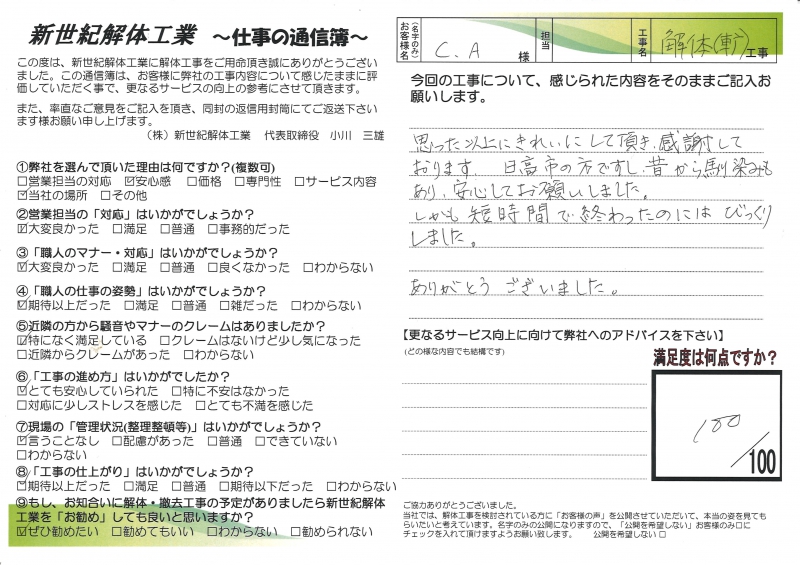 新世紀解体工業 ～仕事の通信簿～
この度は、新世紀解体工業に解体工事をご用命頂き誠にありがとうござい
ました。この通信簿は、お客様に弊社の工事内容について感じたままに評
価していただく事で、更なるサービスの向上の参考にさせて頂きます。
また、率直なご意見をご記入を頂き、同封の返信用封筒にてご返送下さい
ます様お願い申し上げます。
（株）新世紀解体工業 代表取締役 小川 三雄
①弊社を選んで頂いた理由は何ですか？(複数可)
□営業担当の対応 ☑安心感 □価格 □専門性 □サービス内容
☑当社の場所 □その他
②営業担当の「対応」はいかがでしょうか？
☑大変良かった □満足 □普通 □事務的だった
③「職人のマナー・対応」はいかがでしょうか？
☑大変良かった □満足 □普通 □良くなかった □わからない
④「職人の仕事の姿勢」はいかがでしょうか？
☑期待以上だった □満足 □普通 □雑だった □わからない
⑤近隣の方から騒音やマナーのクレームはありましたか？
☑特になく満足している □クレームはないけど少し気になった
□近隣からクレームがあった □わからない
⑥「工事の進め方」はいかがでしたか？
☑とても安心していられた □特に不安はなかった
□対応に少しストレスを感じた □とても不満を感じた
⑦現場の「管理状況(整理整頓等)」はいかがでしょうか？
☑言うことなし □配慮があった □普通 □できていない
□わからない
⑧「工事の仕上がり」はいかがでしょうか？
☑期待以上だった □満足 □普通 □期待以下だった □わからない
⑨もし、お知合いに解体・撤去工事の予定がありましたら新世紀解体
工業を「お勧め」しても良いと思いますか？
☑ぜひ勧めたい □勧めてもいい □わからない □勧められない
(名字のみ) お客様名 C.A 様 担当 工事名 解体 工事
今回の工事について、感じられた内容をそのままご記入お
願いします。
思った以上にきれいにして頂き、感謝して
おります。 日高市の方ですし、昔から馴染みも
あり、安心してお願いしました。
しかも短時間で終わったのにはびっくり
しました。
ありがとうございました。
【更なるサービス向上に向けて弊社へのアドバイスを下さい】
(どの様な内容でも結構です)
満足度は何点ですか？
100
/100
ご協力ありがとうございました。
当社では、解体工事を検討されている方に「お客様の声」を公開させていただいて、本当の姿を見ても
らいたいと考えています。名字のみの公開になりますので、「公開を希望しない」お客様のみ□に
チェックを入れて頂けますようお願い致します。 公開を希望しない □